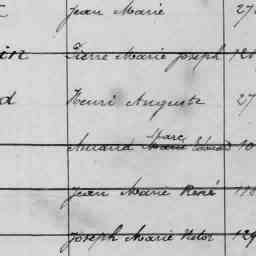 Jean Marie 27
in Pierre Marie Joseph 12
d Henri Auguste 27
Marc
Amand Marie Edouard 10
Jean Marie René 11
Joseph Marie Victor 129